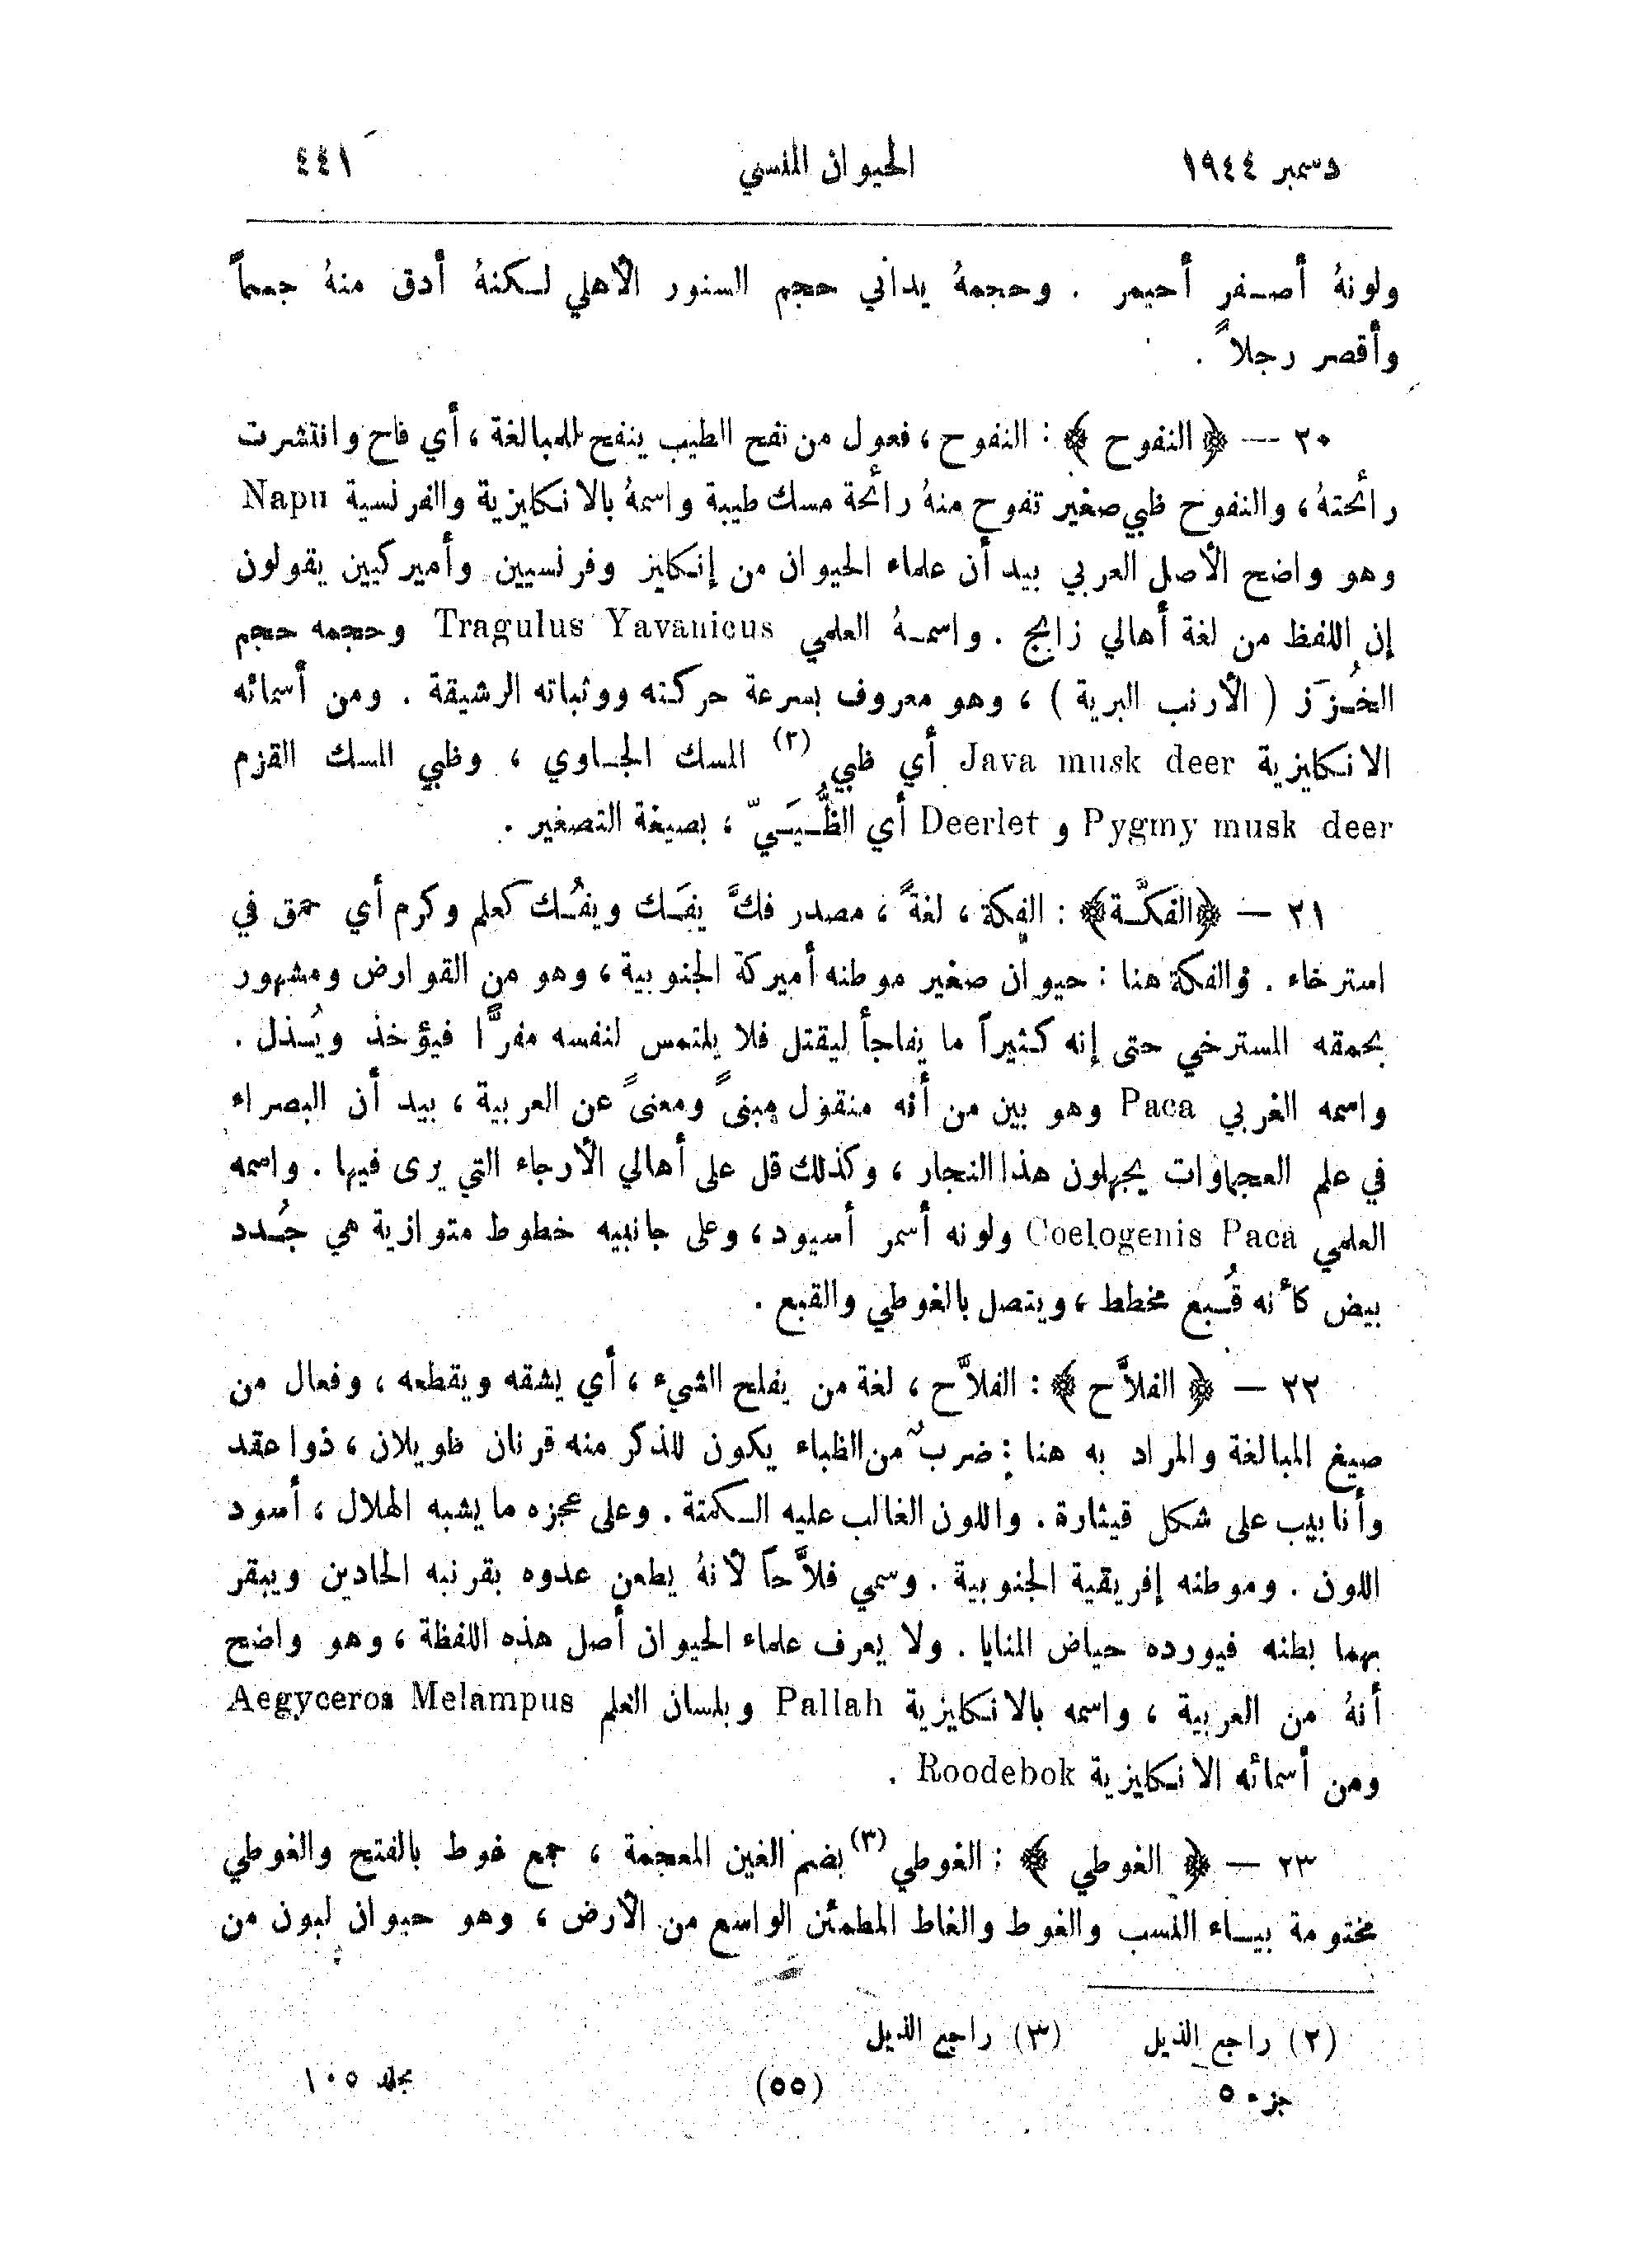 دسمبر ١٩٤٤ الحيوان المنسي ٤٤١
ولونهُ أصفر أحيمر . وحجمهُ يداني حجم السنور الأهلي لكنهُ أدق منهُ جسماً
وأقصر رجلاً .
٢٠ — ﴿ النفوح ﴾ : النفوح ، فعول من نفح الطيب ينفح للمبالغة ، أي فاح وانتشرت
رائحتهُ ، والنفوح ظبي صغير تفوح منهُ رائحة مسك طيبة واسمهُ بالانكليزية والفرنسية Napu
وهو واضح الأصل العربي بيد أن علماء الحيوان من إنكليز وفرنسيين وأميركيين يقولون
إن اللفظ من لغة أهالي زابج . واسمهُ العلمي Tragulus Yavanicus وحجمه حجم
الخُزَز ( الأرنب البرية ) ، وهو معروف بسرعة حركته ووثباته الرشيقة . ومن أسمائه
الانكليزية Java musk deer أي ظبي (٢) المسك الجاوي ، وظبي المسك القزم
Pygmy musk deer و Deerlet أي الظُّبَيّ ، بصيغة التصغير .
٢١ — ﴿الفكَّة﴾ : الفكة ، لغةً ، مصدر فكَّ يفَك ويفُك كعلم وكرم أي حمق في
استرخاء . والفكة هنا : حيوان صغير موطنه أميركة الجنوبية ، وهو من القوارض ومشهور
بحمقه المسترخي حتى إنه كثيراً ما يفاجأ ليقتل فلا يلتمس لنفسه مفرًّا فيؤخذ ويُخذل .
واسمه الغربي Paca وهو بين من أنه منقول مبنىً ومعنىً عن العربية ، بيد أن البصراء
في علم العجماوات يجهلون هذا النجار ، وكذلك قل على أهالي الأرجاء التي يرى فيها . واسمه
العلمي Coelogenis Paca ولونه أسمر أسيود ، وعلى جانبيه خطوط متوازية هي جُدد
بيض كأنه قُبع مخطط ، ويتصل بالغوطي والقبع .
٢٢ — ﴿ الفلاَّح ﴾ : الفلاَّح ، لغة من يفلح الشيء ، أي يشقه ويقطعه ، وفعال من
صيغ المبالغة والمراد به هنا : ضربٌ من الظباء يكون للذكر منه قرنان طويلان ، ذوا عقد
وأنابيب على شكل قيثارة . واللون الغالب عليه الكمتة . وعلى عجزه ما يشبه الهلال ، أسود
اللون . وموطنه إفريقية الجنوبية . وسمي فلاَّحاً لأنهُ يطعن عدوه بقرنيه الحادين ويبقر
بهما بطنه فيورده حياض المنايا . ولا يعرف علماء الحيوان أصل هذه اللفظة ، وهو واضح
أنهُ من العربية ، واسمه بالانكليزية Pallah وبلسان العلم Aegyceros Melampus
ومن أسمائه الانكليزية Roodebok .
٢٣ — ﴿ الغوطي ﴾ : الغوطي (٣) بضم الغين المعجمة ، جمع غوط بالفتح والغوطي
مختومة بياء النسب والغوط والغاط المطمئن الواسع من الأرض ، وهو حيوان لبون من
(٢) راجع الذيل (٣) راجع الذيل
جزء ٥ (٥٥) مجلد ١٠٥